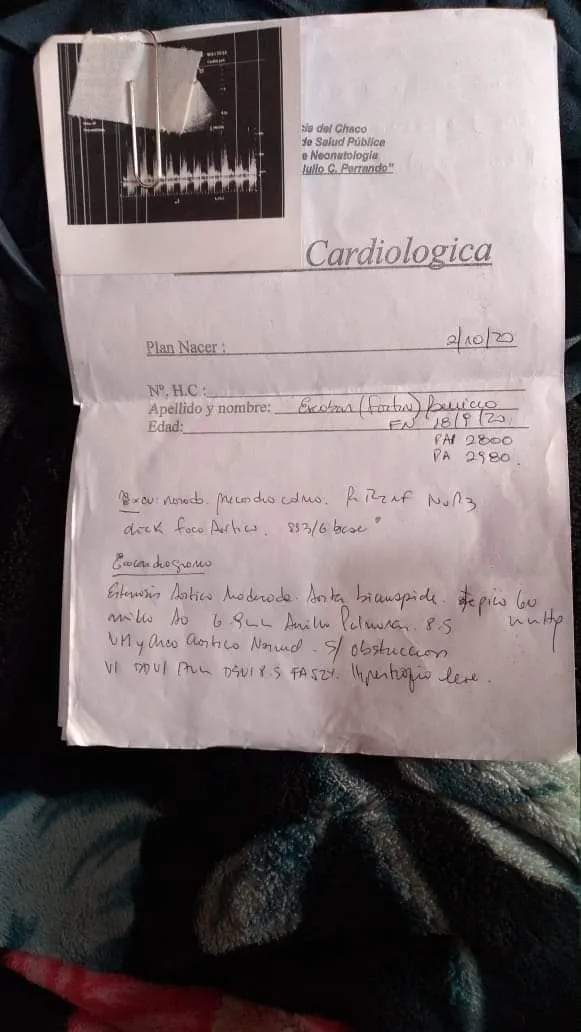 cia del Chaco
de Salud Pública
e Neonatología
Julio C. Perrando"
Cardiologica
Plan Nacer : 2/10/20
Nº. H.C :
Apellido y nombre: Escobar
Edad: FN 18/9/20
PAN 2800
PA 2980.
R1 R2 NF No R3
click foco Aortico. SS 3/6 base
Ecocardiograma
Estenosis Aortica Moderada. Aorta bicuspide. pico 60
anillo Ao Anillo Pulmonar. 8.5 mmHg
VM y Arco aortico Normal. S/ obstruccion
VI DDVI DSVI 8.5 FA 52%. Hipertrofia leve.